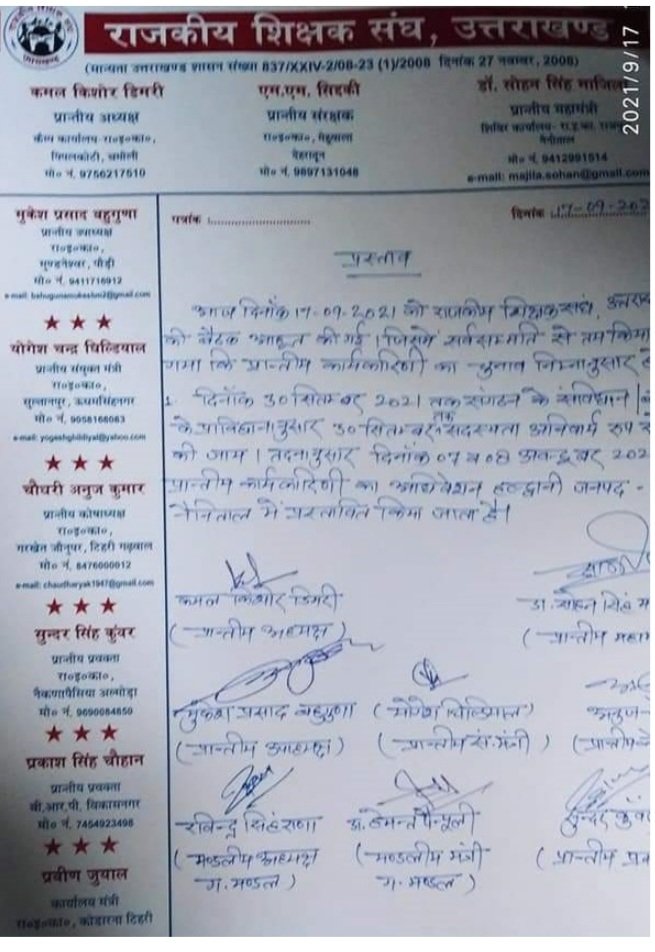 राजकीय शिक्षक संघ, उत्तराखण्ड
(मान्यता उत्तराखण्ड शासन संख्या 837/XXIV-2/08-23 (1)/2008 दिनांक 27 नवम्बर, 2008)
2021/9/17
कमल किशोर डिमरी
प्रान्तीय अध्यक्ष
कैम्प कार्यालय- रा०इ०का०,
पिपलकोटी, चमोली
मो० नं. 9756217510
एम.एम. सिद्दकी
प्रान्तीय संरक्षक
रा०इ०का०, मेहूवाला
देहरादून
मो० नं. 9897131048
डॉ. सोहन सिंह माजिला
प्रान्तीय महामंत्री
शिविर कार्यालय- रा.इ.का.
नैनीताल
मो० नं. 9412991514
e-mail: majila.sohan@gmail.com
मुकेश प्रसाद बहुगुणा
प्रान्तीय उपाध्यक्ष
रा०इ०का०,
मुण्डनेश्वर, पौड़ी
मो० नं. 9411716912
★ ★ ★
योगेश चन्द्र घिल्डियाल
प्रान्तीय संयुक्त मंत्री
रा०इ०का०,
सुल्तानपुर, ऊधमसिंहनगर
मो० नं. 9058168083
e-mail: yogeshghildiyal@yahoo.com
★ ★ ★
चौधरी अनुज कुमार
प्रान्तीय कोषाध्यक्ष
रा०इ०का०,
गरखेत जौनपुर, टिहरी गढ़वाल
मो० नं. 8476000012
e-mail: chaudharyak1947@gmail.com
★ ★ ★
सुन्दर सिंह कुंवर
प्रान्तीय प्रवक्ता
रा०इ०का०,
नैकणापैसिया अल्मोड़ा
मो० नं. 9690084850
★ ★ ★
प्रकाश सिंह चौहान
प्रान्तीय प्रवक्ता
बी.आर.पी. विकासनगर
मो० नं. 7454923498
★ ★ ★
प्रवीण जुयाल
कार्यालय मंत्री
रा०इ०का०, कोडारना टिहरी
पत्रांक :..............................
दिनांक :17-09-202
प्रस्ताव
आज दिनाँक 17-09-2021 को राजकीय शिक्षक संघ, उत्तरा
की बैठक आहूत की गई। जिसमें सर्वसम्मति से तय किया
गया कि प्रान्तीय कार्यकारिणी का चुनाव निम्नानुसार
1. दिनाँक 30 सितम्बर 2021 तक संगठन के संविधान
के प्राविधानानुसार 30 सितम्बर तक सदस्यता अनिवार्य रूप से
की जाय। तदनानुसार दिनाँक 07 व 08 अक्टूबर 202
प्रान्तीय कार्यकारिणी का अधिवेशन हल्द्वानी जनपद -
नैनिताल में प्रस्तावित किया जाता है।
कमल किशोर डिमरी
(प्रान्तीय अध्यक्ष)
डा. सोहन सिंह म
(प्रान्तीय महा
मुकेश प्रसाद बहुगुणा
(प्रान्तीय उपाध्यक्ष)
(योगेश घिल्डियाल)
(प्रान्तीय सं. मंत्री)
अनुज
(प्रान्तीय
रविन्द्र सिंह राणा
(मण्डलीय अध्यक्ष
ग. मण्डल)
डा. हेमन्त पैन्यूली
(मण्डलीय मंत्री
ग. मण्डल)
सुन्दर कुंव
(प्रान्तीय प्रव